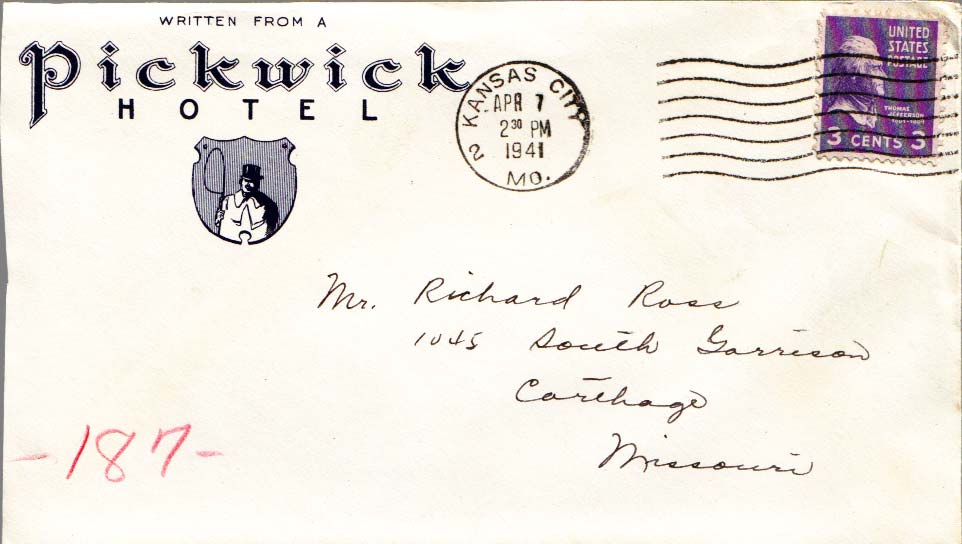 WRITTEN FROM A
Pickwick
HOTEL
2 KANSAS CITY
APR 7
2 30 PM
1941
MO.
UNITED
STATES
POSTAGE
THOMAS
JEFFERSON
1801-1809
3 CENTS 3
Mr. Richard Ross
1045 South Garrison
Carthage
Missouri
-187-